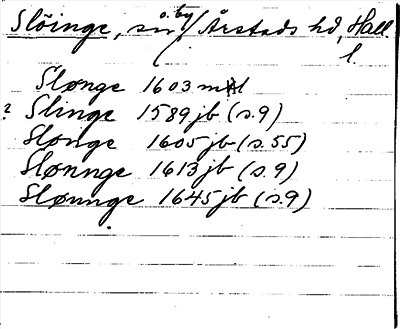 Slöinge, sn o. by / Årstads hd, Hall. l.
Slønge 1603 mtl
? Slinge 1589 jb (s. 9)
Slønge 1605 jb (s. 55)
Slønnge 1613 jb (s. 9)
Slønnge 1645 jb (s. 9)